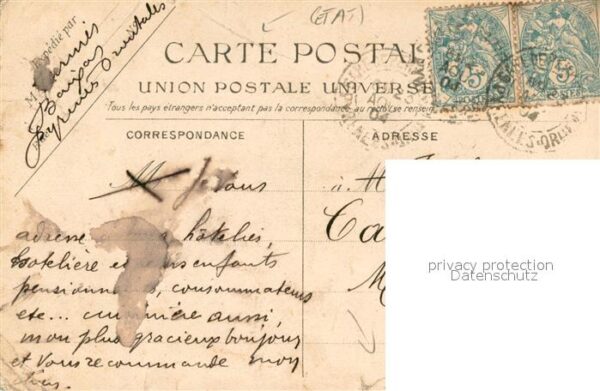 (ETAT)
Expédié par
M
Bernis
Baixas
Pyrénées Orientales
CARTE POSTAL
UNION POSTALE UNIVERSE
Tous les pays étrangers n'acceptent pas la correspondance au recto (se rensei
CORRESPONDANCE
ADRESSE
M Je vous
à M
adresse hôtelier,
Ca
hotelière et enfants
M
pensionnaires, consommateurs
etc... cuisinière aussi,
mon plus gracieux bonjour
et vous recommande mon
5
5
04
04
privacy protection
Datenschutz